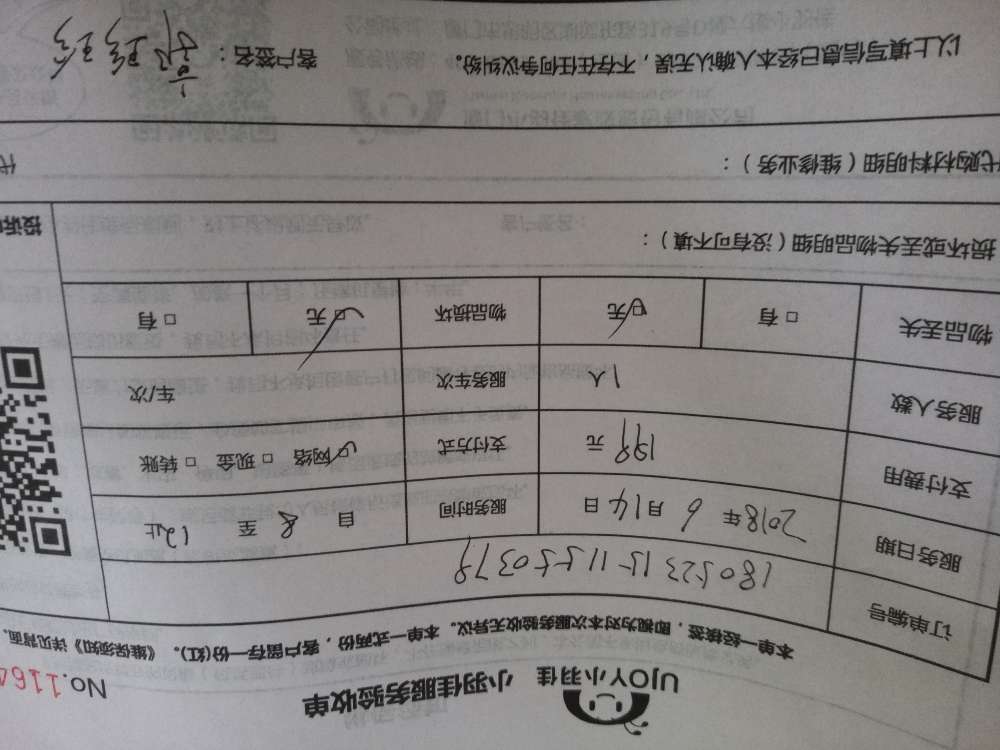 UJOY小羽佳 小羽佳服务验收单
No.1164
本单一经核签，即视为对本次服务验收无异议。本单一式两份，客户留存一份(红)。《维保须知》详见背面。
订单编号 1805231511550379
服务日期 2018年6月14日 服务时间 自 8 至 12止
支付费用 198元 支付方式 网络 □ 现金 □ 转账
服务人数 1人 服务车次 车/次
物品丢失 □ 有 □ 无 物品损坏 □ 无 □ 有
损坏或丢失物品明细（没有可不填）：
代购材料明细（维修业务）：
以上填写信息已经本人确认无误，不存在任何争议纠纷。 客户签名：
投诉